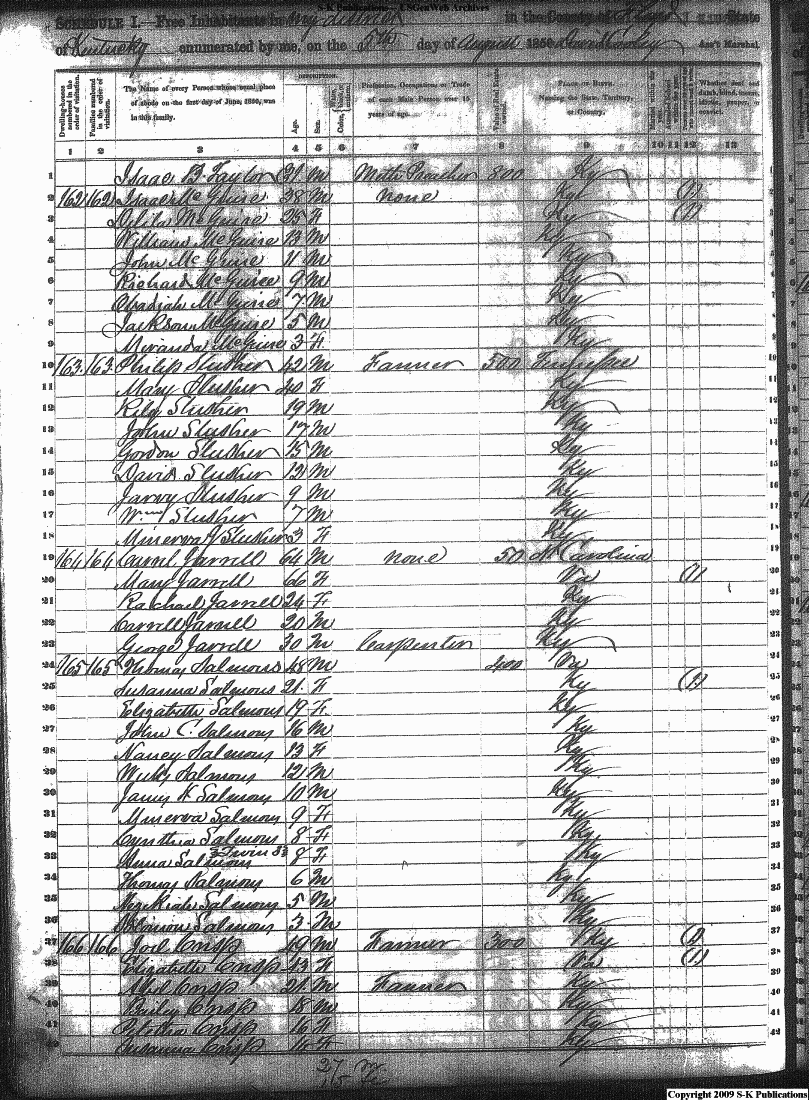 S-K Publications - USGenWeb Archives
SCHEDULE I.—Free Inhabitants in my district in the County of Floyd State
of Kentucky enumerated by me, on the 5th day of August 1850. Ass't Marshal.
Dwelling-houses numbered in the order of visitation.
Families numbered in the order of visitation.
The Name of every Person whose usual place of abode on the first day of June, 1850, was in this family.
DESCRIPTION.
Age.
Sex.
Color,
Profession, Occupation, or Trade of each Male Person over 15 years of age.
Value of Real Estate owned.
PLACE OF BIRTH. Naming the State, Territory, or Country.
Whether deaf and dumb, blind, insane, idiotic, pauper, or convict.
1 2 3 4 5 6 7 8 9 10 11 12 13
1 Isaac B Taylor 31 M Meth Preacher 800 Ky
2 162 162 McGuire 38 M none Ky (1)
3 McGuire 28 F Ky (1)
4 William McGuire 13 M Ky
5 John McGuire 11 M Ky
6 Richard McGuire 9 M Ky
7 Obadiah McGuire 7 M Ky
8 Jackson McGuire 5 M Ky
9 Miranda McGuire 3 F Ky
10 163 163 Philip Slusher 42 M Farmer 500 Tennessee
11 Mary Slusher 40 F Ky
12 Slusher 19 M Ky
13 John Slusher 17 M Ky
14 Gordon Slusher 15 M Ky
15 David Slusher 12 M Ky
16 Slusher 9 M Ky
17 Wm Slusher 7 M Ky
18 Minerva J Slusher 3 F Ky
19 164 164 Carrel Jarrell 64 M none 50 N Carolina
20 Mary Jarrell 66 F Va (1)
21 Rachael Jarrell 24 F Ky
22 Carrell Jarrell 20 M Ky
23 George Jarrell 30 M Carpenter Ky
24 165 165 Thomas Salmons 48 M 400 Va
25 Susanna Salmons 21 F Ky (1)
26 Elizabeth Salmons 19 F Ky
27 John C. Salmons 16 M Ky
28 Nancy Salmons 13 F Ky
29 Salmons 12 M Ky
30 James H Salmons 10 M Ky
31 Minerva Salmons 9 F Ky
32 Cynthia Salmons 8 F Ky
Twins
33 Anna Salmons 8 F Ky
34 Thomas Salmons 6 M Ky
35 Hezekiah Salmons 5 M Ky
36 Salmons 3 M Ky
37 166 166 Joel Crisp 49 M Farmer 300 Ky (1)
38 Elizabeth Crisp 43 F Va (1)
39 Abel Crisp 21 M Farmer Ky
40 Bailey Crisp 18 M Ky
41 Crisp 16 F Ky
42 Susanna Crisp 14 F Ky
27 M
15 Fe
Copyright 2009 S-K Publications